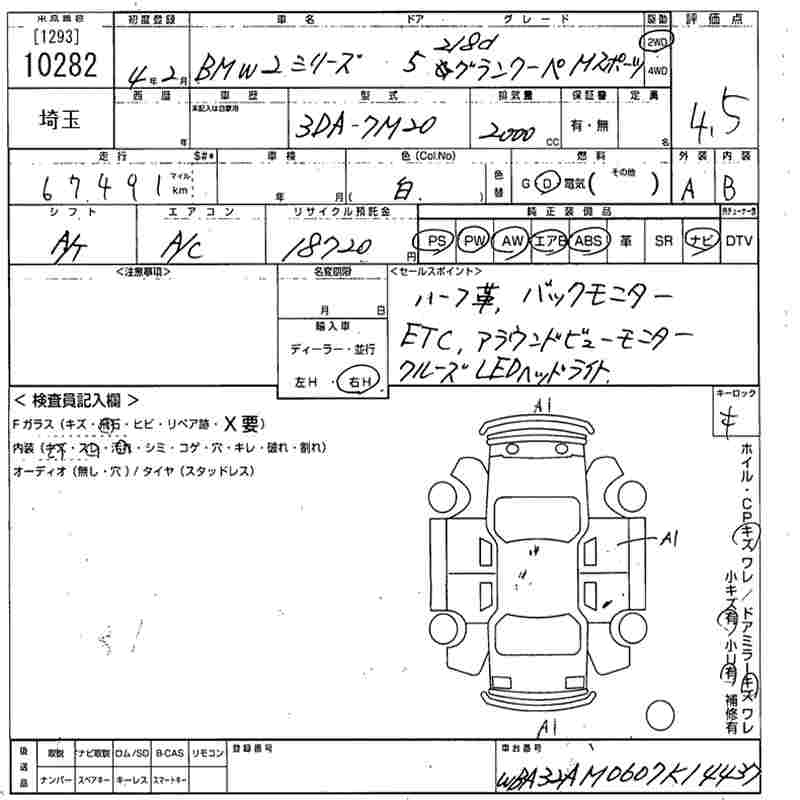 [1293]
10282
埼玉
初度登録 車名 ドア グレード 駆動 評価点
4年2月 BMW2シリーズ 5 218d グランクーペ Mスポーツ 2WD 4WD
4.5
西暦 車歴 型式 排気量 保証書 定員
未記入は自家用
年 3DA-7M20 2000 CC 有・無 名
走行 $#* 車検 色(Col.No) 燃料 外装 内装
67,491 マイル km 年 月 ( 白 ) 色替 G D 電気 ( その他 ) A B
シフト エアコン リサイクル預託金 純正装備品
A/T A/C 18720円 PS PW AW エアB ABS 革 SR ナビ DTV
<注意事項> 名変期限 <セールスポイント>
月 日
ハーフ革, バックモニター
ETC, アラウンドビューモニター
クルーズ LEDヘッドライト
輸入車
ディーラー・並行
左H・右H
キーロック
キ
< 検査員記入欄 >
Fガラス (キズ・飛石・ヒビ・リペア跡・X要)
内装 (キズ・スレ・汚れ・シミ・コゲ・穴・キレ・破れ・割れ)
オーディオ (無し・穴) / タイヤ (スタッドレス)
A1
A1
A1
ホイル・CPキズ ワレ / ドアミラーキズ ワレ
小キズ有 / 小U有 / 補修有
後送品 取説 ナビ取説 ロム/SD B-CAS リモコン 登録番号 車台番号
ナンバー スペアキー キーレス スマートキー WBA32AM0607K14437